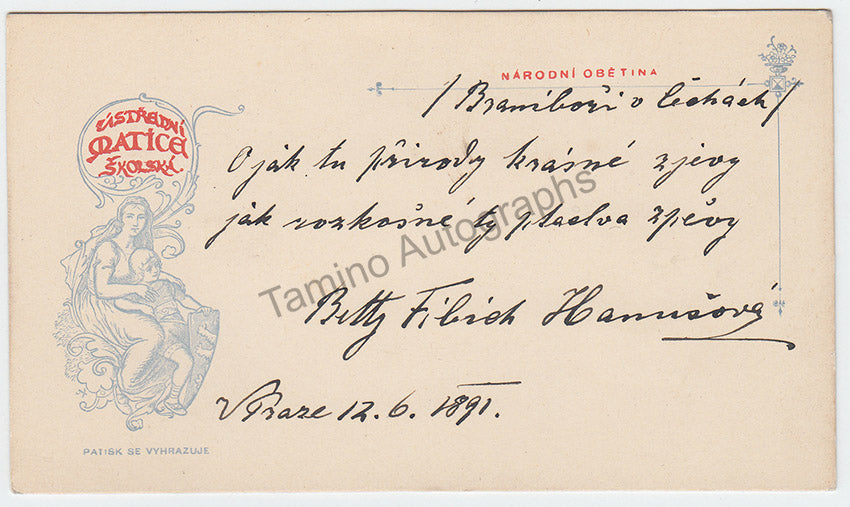 NÁRODNÍ OBĚTINA
/Braniboři v Čechách/
ÚSTŘEDNÍ
MATICE
ŠKOLSKÁ.
O jak tu přírody krásné zjevy
jak rozkošné ty ptactva zpěvy
Betty Fibich Hanušová
V Praze 12. 6. 1891.
PATISK SE VYHRAZUJE
Tamino Autographs